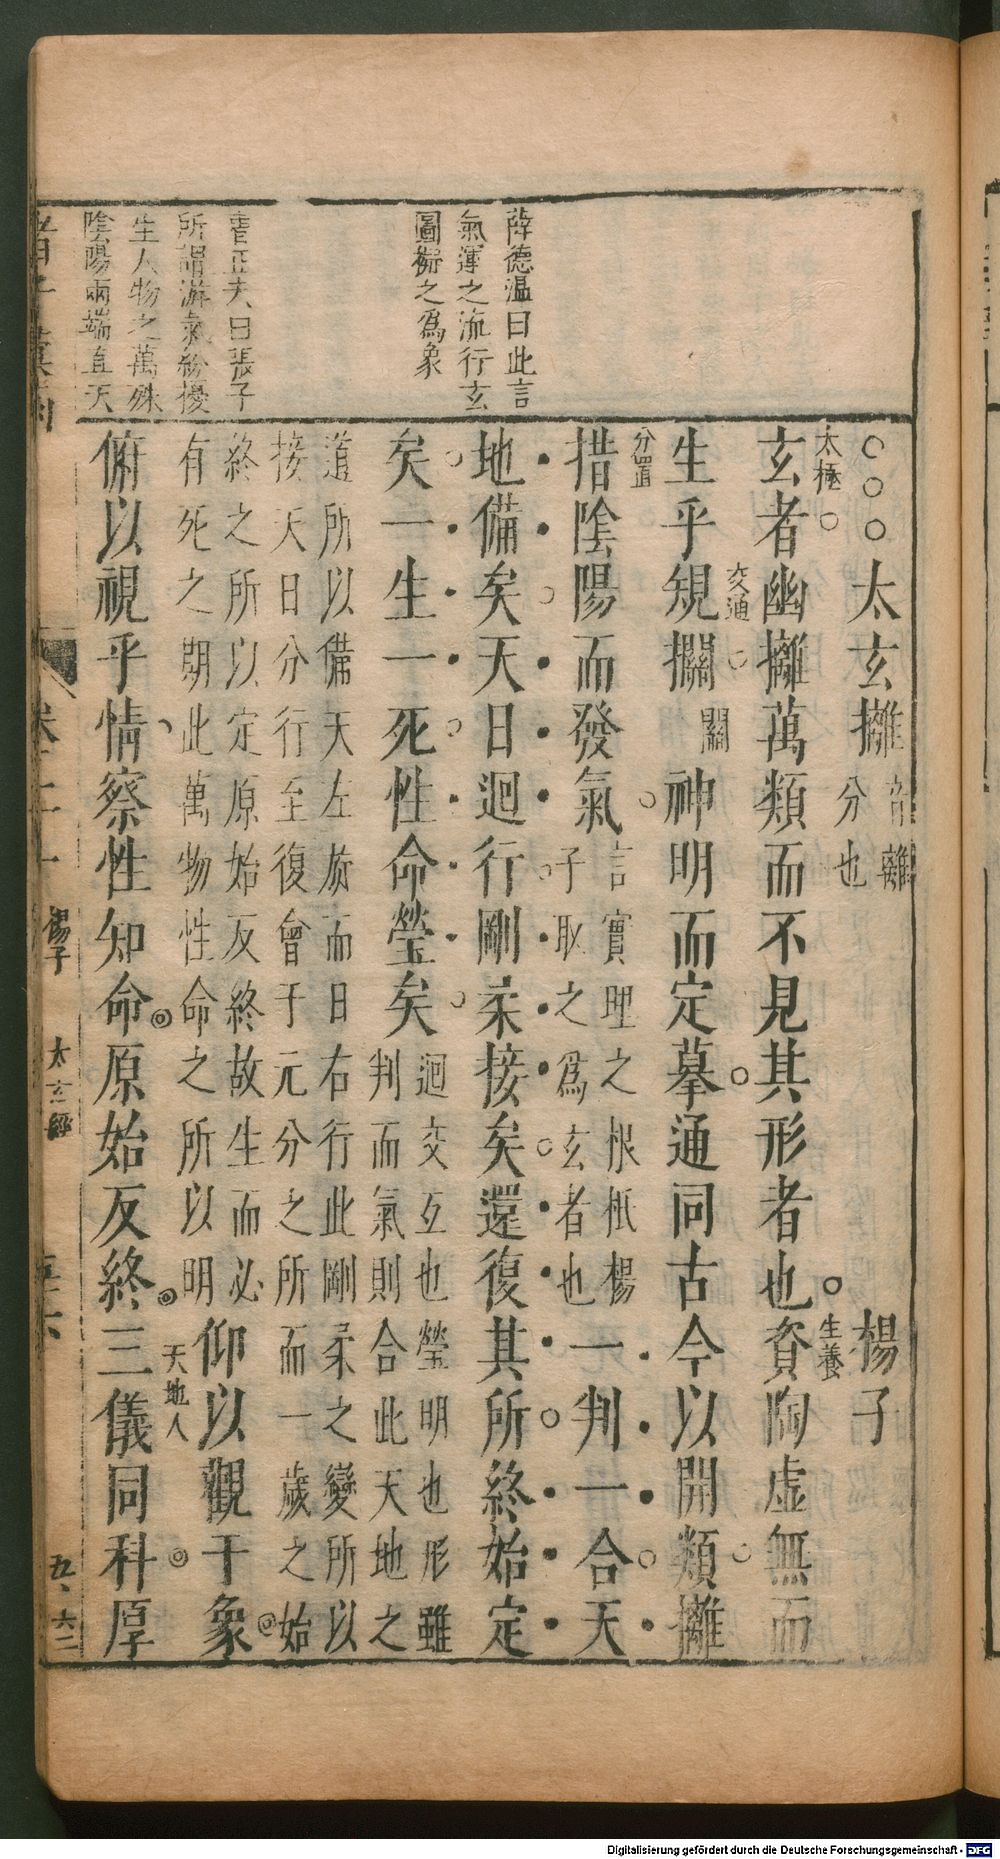 薛德溫曰此言
氣運之流行玄
圖擬之爲象
正夫曰張子
所謂游氣紛擾
生人物之萬殊
陰陽兩端直天
○○○太玄攡 音離 分也 楊子
太極
玄者幽攡萬類而不見其形者也資陶虛無而
生養
生乎規攔 關 神明而定摹通同古今以開類攡
交通
措陰陽而發氣 言實理之根柢楊子取之爲玄者也 一判一合天
分置
地備矣天日迴行剛柔接矣還復其所終始定
矣一生一死性命瑩矣 迴交互也瑩明也形雖判而氣則合此天地之
道所以備天左旋而日右行此剛柔之變所以
接天日分行至復會于元分之所而一歲之始
終之所以定原始反終故生而必
有死之期此萬物性命之所以明 仰以觀于象
俯以視乎情察性知命原始反終三儀同科厚
天地人
楊子
太玄經
五、六二
Digitalisierung gefördert durch die Deutsche Forschungsgemeinschaft - DFG